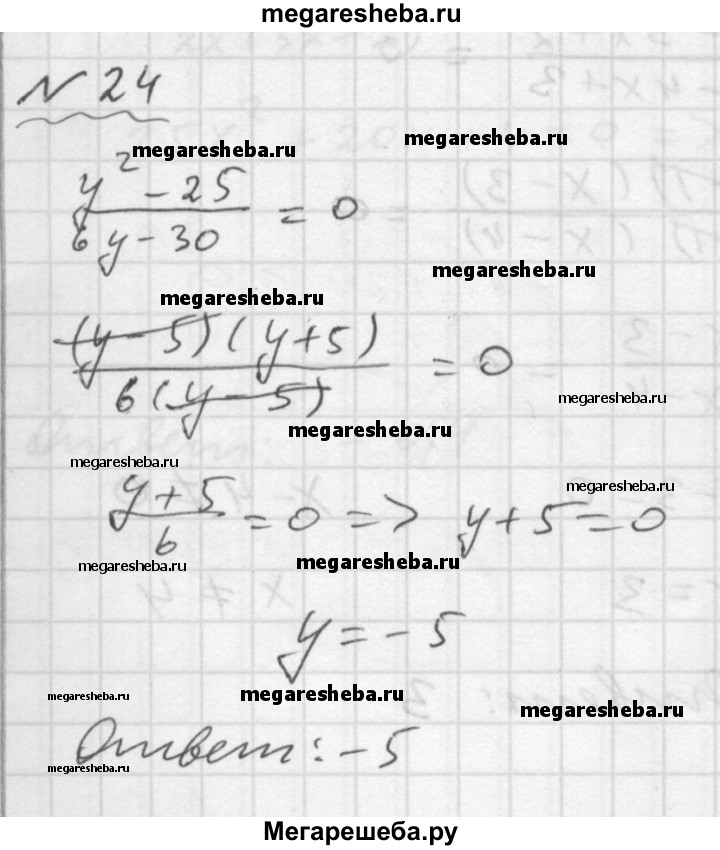 megaresheba.ru
№ 24
megaresheba.ru megaresheba.ru
y² - 25
6y - 30 = 0
megaresheba.ru
megaresheba.ru
(y - 5)(y + 5)
6(y - 5) = 0
megaresheba.ru
megaresheba.ru
megaresheba.ru
megaresheba.ru
y + 5
6 = 0 => y + 5 = 0
megaresheba.ru
megaresheba.ru
megaresheba.ru
y = - 5
megaresheba.ru
megaresheba.ru
megaresheba.ru
Ответ: - 5
megaresheba.ru
Мегарешеба.ру